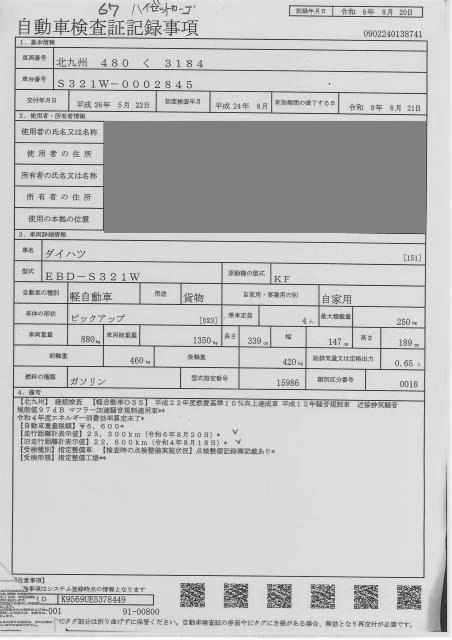 67 ハイゼットカーゴ
記録年月日 令和 6年 8月 20日
自動車検査証記録事項
0902240138741
1．基本情報
車両番号 北九州 480 く 3184
車台番号 S321W-0002845
交付年月日 平成26年 5月 22日 初度検査年月 平成24年 8月 有効期間の満了する日 令和 8年 8月 21日
2．使用者・所有者情報
使用者の氏名又は名称
使用者の住所
所有者の氏名又は名称
所有者の住所
使用の本拠の位置
3．車両詳細情報
車名 ダイハツ [151]
型式 EBD-S321W 原動機の型式 KF
自動車の種別 軽自動車 用途 貨物 自家用・事業用の別 自家用
車体の形状 ピックアップ [023] 乗車定員 4人 最大積載量 250kg
車両重量 880kg 車両総重量 1350kg 長さ 339cm 幅 147cm 高さ 189cm
前軸重 460kg 後軸重 420kg 総排気量又は定格出力 0.65 L
燃料の種類 ガソリン 型式指定番号 15986 類別区分番号 0018
4．備考
【北九州】 継続検査 【軽自動車OSS】 平成22年度燃費基準10％向上達成車 平成12年騒音規制車 近接排気騒音
規制値97dB マフラー加速騒音規制適用車**
令和4年度エネルギー消費効率算定未了*
【自動車重量税額】￥6,600*
【走行距離計表示値】25,300km（令和6年8月20日）*
【旧走行距離計表示値】22,600km（令和4年8月18日）*
【受検種別】指定整備車 【検査時の点検整備実施状況】点検整備記録簿記載あり*
【受検形態】指定整備工場**
注意事項】
事項はシステム登録時点の情報となります
ID K9569UE5378449
-001 91-00800
ICタグ部分は折り曲げずに保管ください。自動車検査証の券面やICタグにき損がある場合、無効となり再交付が必要です。